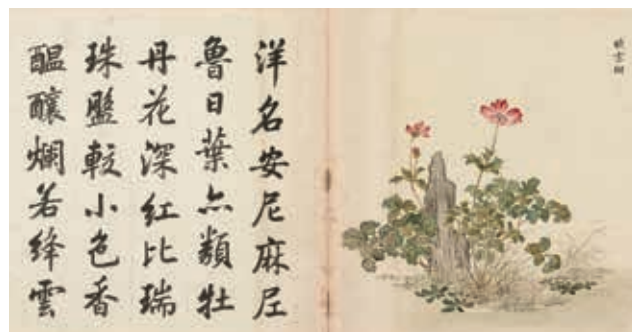 洋名安尼麻尼
魯日葉亦類牡
丹花深紅比瑞
珠盤較小色香
醞釀爛若絳雲